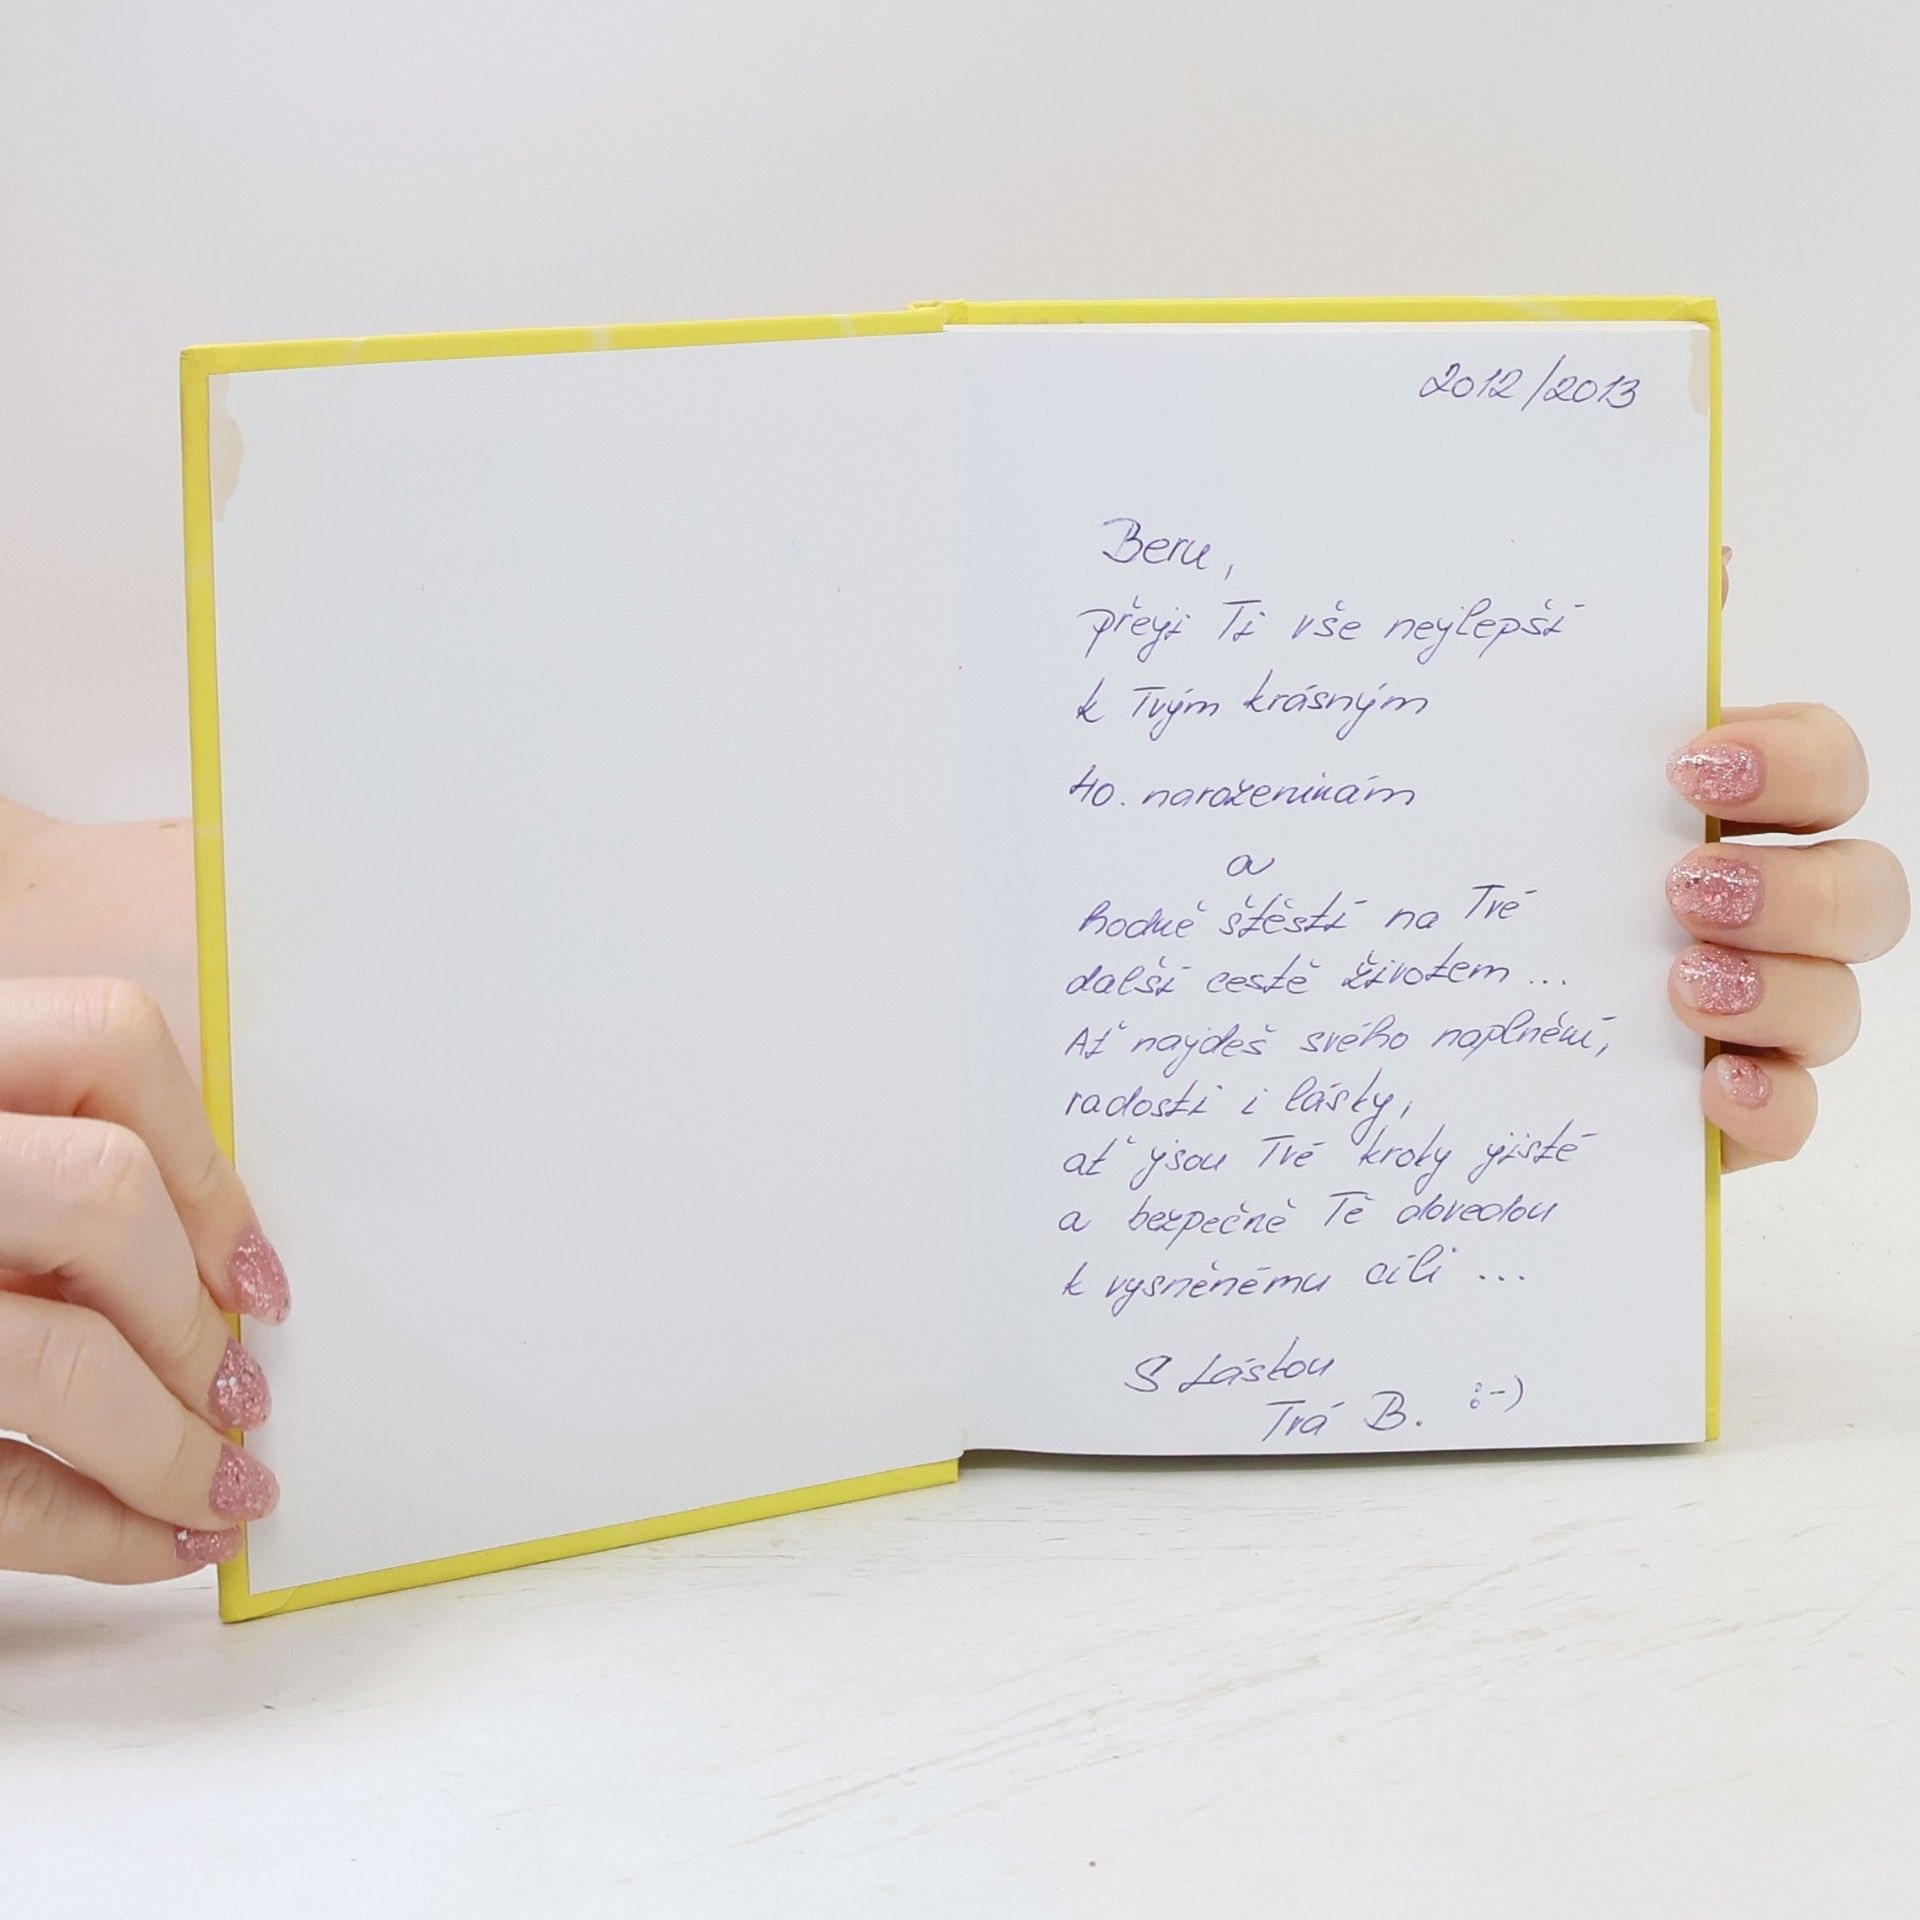 2012/2013
Beru,
přeji Ti vše nejlepší
k Tvým krásným
40. narozeninám
a
hodně štěstí na Tvé
další cestě životem ...
Ať najdeš svého naplnění,
radosti i lásky,
ať jsou Tvé kroky jisté
a bezpečně Tě dovedou
k vysněnému cíli ...
S Láskou
Tvá B. :-)